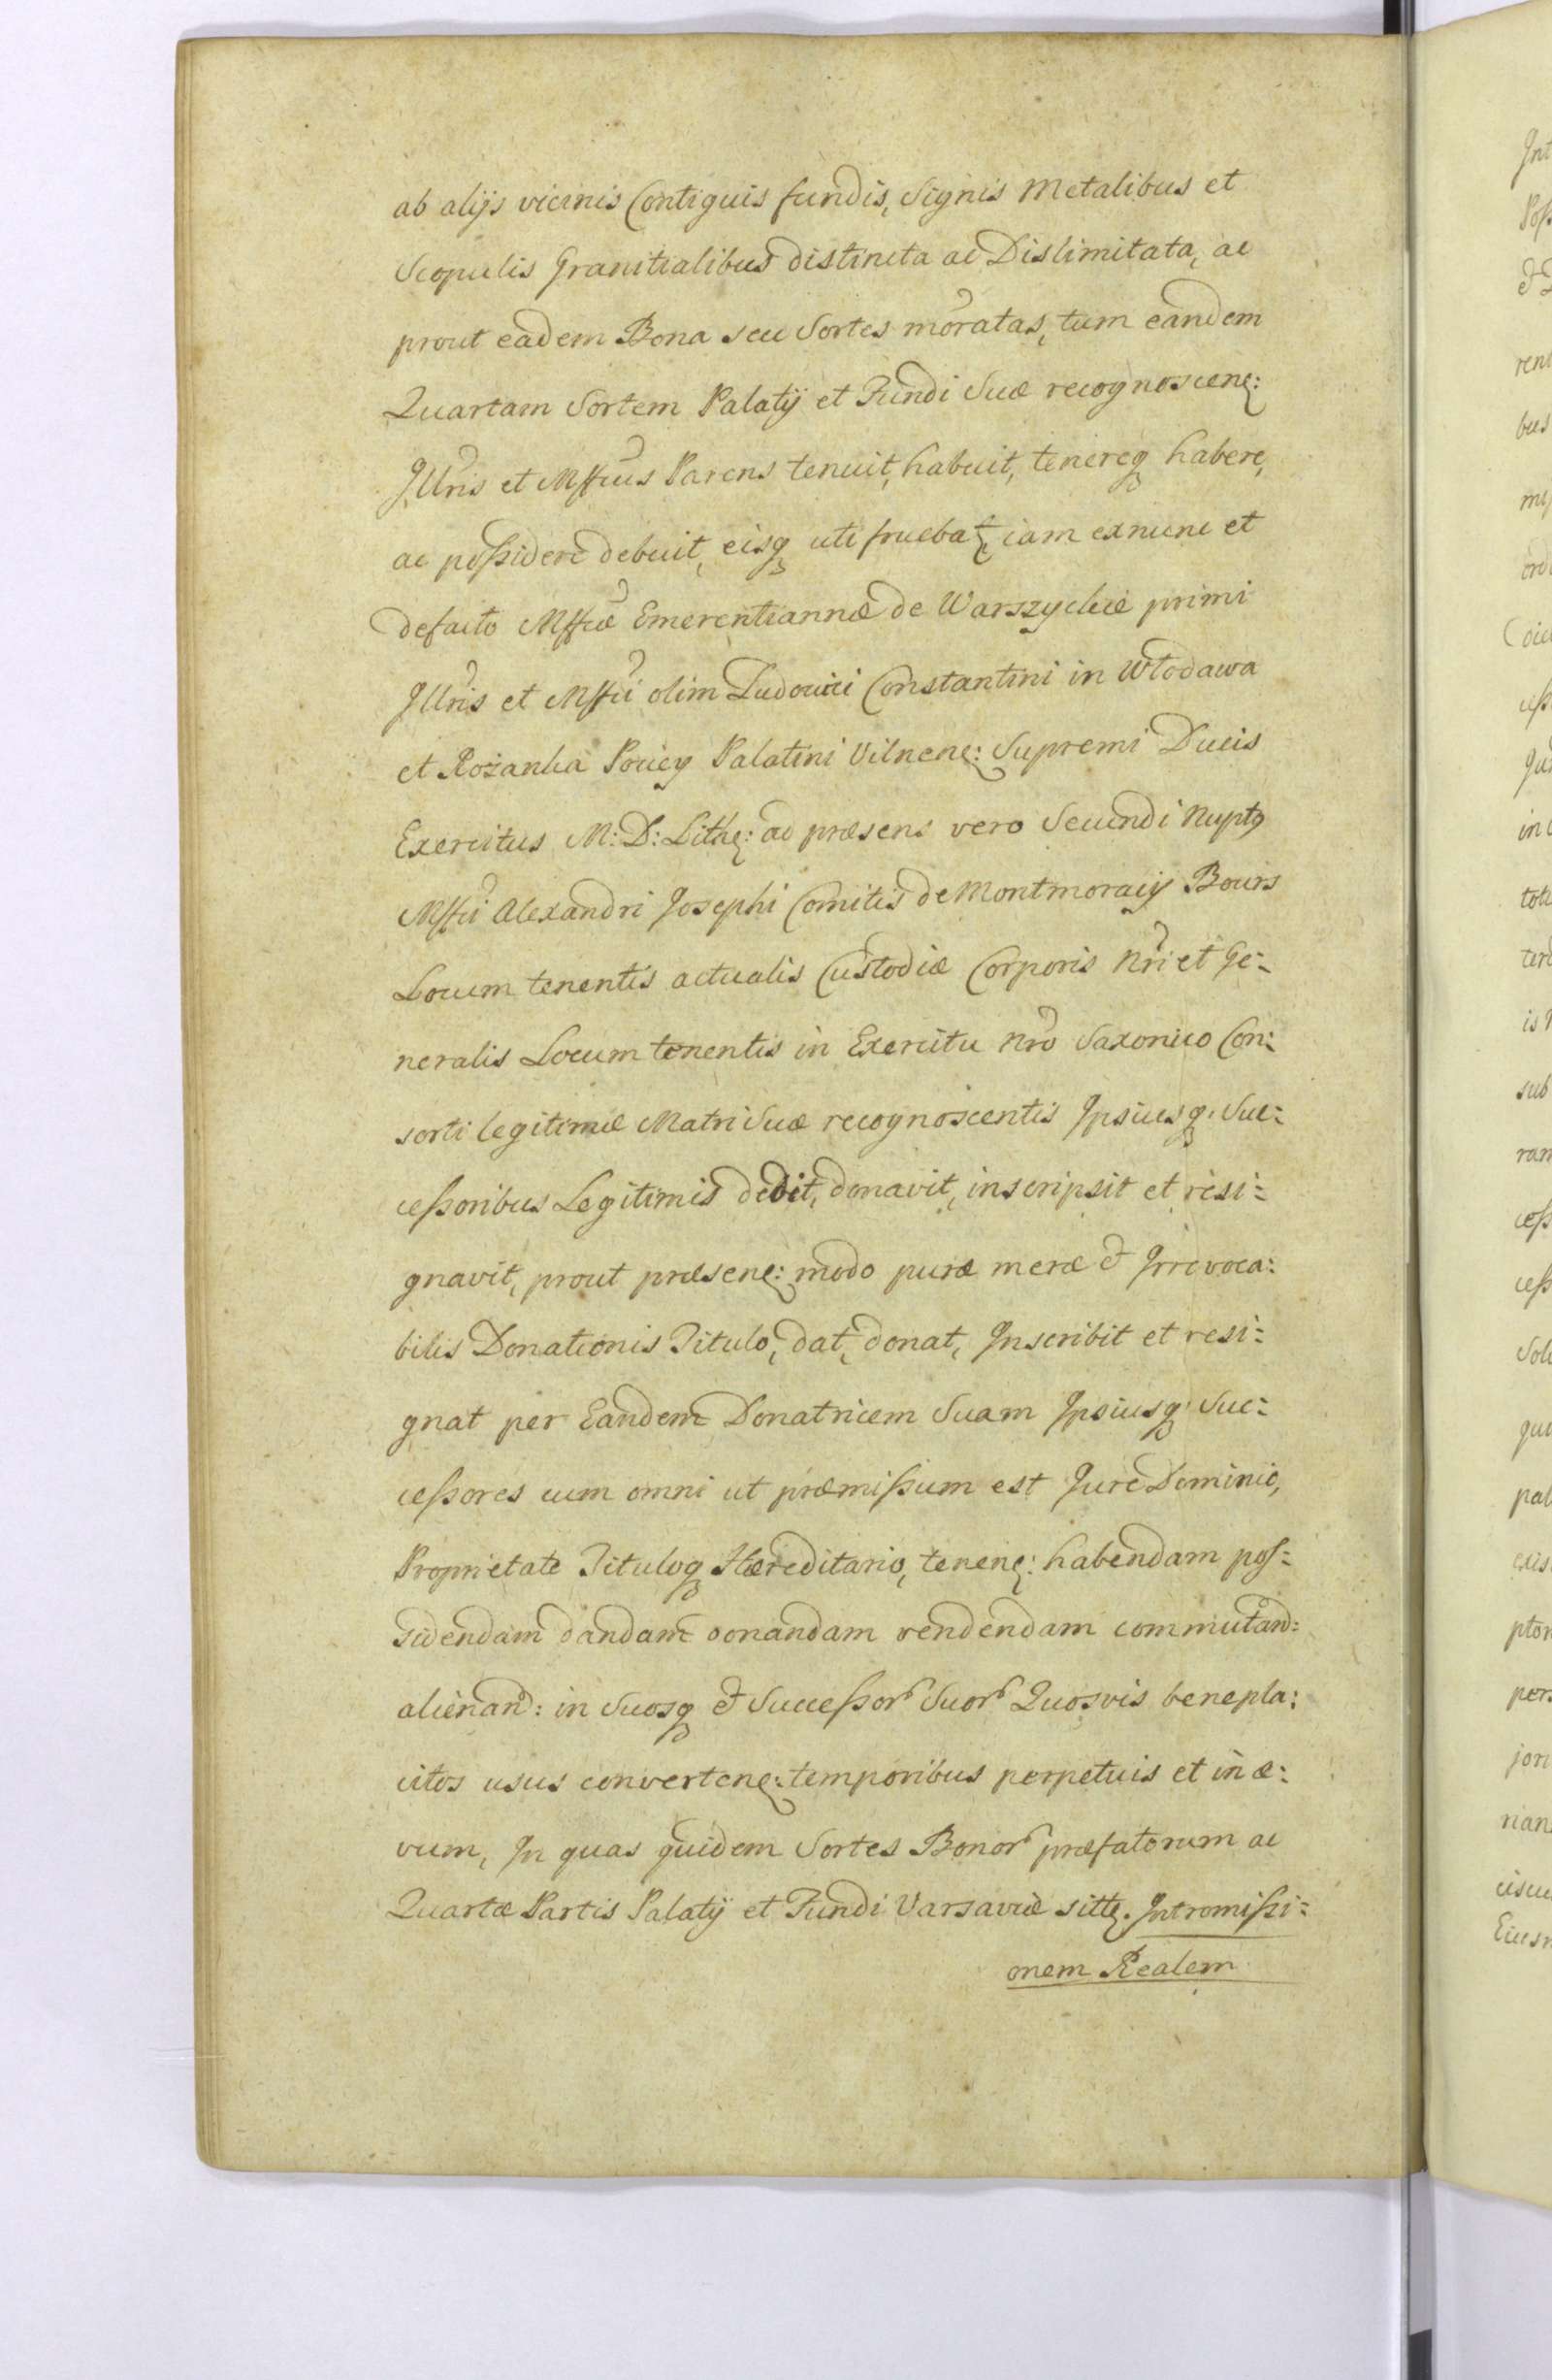 ab alijs vicinis Contiguis fundis, Signis Metalibus et
Scopulis Granitialibus distincta ac Dislimitata, ac
prout eadem Bona seu Sortes moratas, tum eandem
Quartam Sortem Palatÿ et Fundi Suæ recognoscenꝭ:
Jllris et Mffcus Parens tenuit, habuit, tenereq habere,
ac poßidere debuit, eisq uti fruebatꝭ, iam exnunc et
defacto Mffcæ Emerentiannæ de Warszyckie primi
Jllris et Mffci olim Ludovici Constantini in Włodawa
et Rożanka Pociey Palatini Vilnenꝭ: Supremi Ducis
Exercitus M: D: Lithꝭ: ad præsens vero Secundi Nuptꝰ
Mffci Alexandri Josephi Comitis de Montmoracij Bours
Locum tenentis actualis Custodiæ Corporis Nri et Ge:
neralis Locum tenentis in Exercitu Nro Saxonico Con:
sorti legitimæ Matri Suæ recognoscentis Jpsiusq. Suc:
ceßoribus Legitimis dedit, donavit, inscripsit et resi:
gnavit, prout præsenꝭ: modo puræ meræ & Jrrevoca:
bilis Donationis Titulo, dat, donat, Jnscribit et resi:
gnat per Eandem Donatricem Suam Jpsiusq Suc:
ceßores cum omni ut præmißum est Jure Dominio,
Proprietate Tituloq Hæreditario, tenenꝭ: habendam pos:
sidendam dandam donandam vendendam commutand:
alienand: in Suosq & Succeßor Suor Quosvis benepla:
citos usus convertenꝭ: temporibus perpetuis et in æ:
vum, Jn quas quidem Sortes Bonor præfatorum ac
Quartæ Partis Palatÿ et Fundi Varsaviæ sittꝭ. Jntromißi:
onem Realem